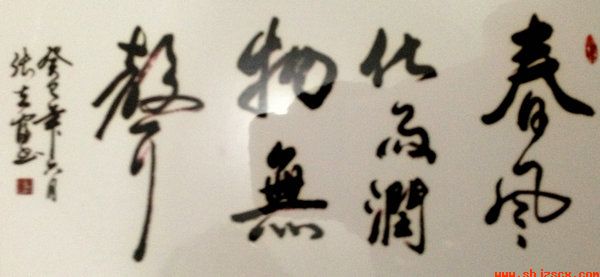 春风
化雨潤
物無
聲
癸巳年六月
张立
www.shjzscx.com